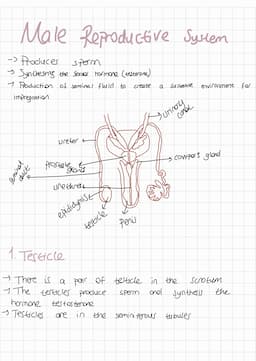 Male Reproductive System
-> Produces sperm
-> Synthesins the sexual hormone (testosterone)
-> Production of seminal fluid to create a suitable environment for
impregnation
urinary
ureter
prostate
gland
cowper's gland
duct
urethra
epididymis
testicle
penis
1. Testicle
-> There is a pair of testicle in the scrotum
-> The testicles produce sperm and synthesis the
hormone testosterone
-> Testicles are in the seminiferous tubules